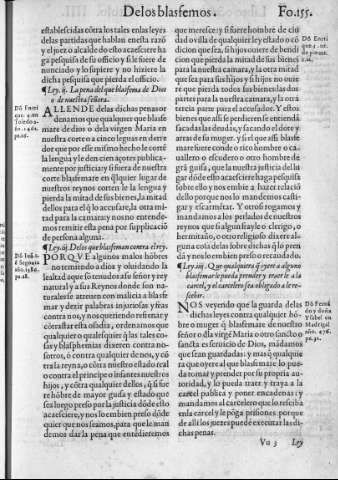 De los blasfemos. Fo.155.
establescidas cõtra los tales en las leyes
de las partidas que hablan enesta razõ
y el juez o alcalde do esto acaesciere ha
ga pesquisa de su officio y si le fuere de
nunciado y lo supiere y no hiziere la
dicha pesquisa que pierda el officio.
¶ Ley .ij. La pena del que blasfema de Dios
o de nuestra señora.
Dõ Enri
que. 4. en
Toledo a
ño. 1462.
pe.
ALLENDE delas dichas penas or
denamos que qualquier que blasfe
mare de dios o dela virgen Maria en
nuestra corte o a cinco leguas en derre
dor que por esse mismo hecho le cortẽ
la lengua y le den cien açotes publica-
mente por justicia: y si fuera de nuestra
corte blasfemare en q̃lquier lugar de
nuestros reynos corten le la lengua y
pierda la mitad de sus bienes, la mitad
dellos para el q̃ lo accusare, la otra mi
tad para la camara: y nos no entende-
mos remitir esta pena por supplicaciõ
de persona alguna.
¶ Ley .iij. Delos que blasfeman contra el rey.
Dõ Iuã. 1.
ẽ Segouia
PORQVE algunos malos hõbres
no temiendo a dios y oluidando la
lealtad a que son tenidos a su señor y rey
natural y a sus Reynos donde son na-
turales se atreuen con malicia a blasfe
mar y dezir palabras injuriosas y feas
contra nos, y nos queriendo refrenar y
cõtrastar esta osadia, ordenamos que
qualquier o qualesquier q̃ las tales co-
sas y blasphemias dixeren contra no-
sotros, o contra qualquier de nos, y cõ
tra la reyna, o cõtra nuestro estado real
o contra el principe o infantes nuestros
hijos, y cõtra qualquier dellos, q̃ si fue
re hõbre de mayor guisa y estado que
sea luego preso por la justicia dõde esto
acaesciere, y nos lo embien preso dõde
quier que nos seamos, para que le man
demos dar la pena que entendieremos
que meresce: y si fuere hombre de ciu
dad o villa de qualquier ley estado o cõ
dicion que sea, si hijos vuiere de bendi
cion que pierda la mitad de sus bienes
para la nuestra camara, y la otra mitad
que sea para sus hijos: y si hijos no vuie
re que pierda de sus bienes las dos par
tes para la nuestra camara, y la otra
tercia parte para el accusador. Y estos
bienes que assi se perdieren se entienda
sacadas las deudas, y sacando el dote y
arras de su muger. y si el que assi blasfe
mare fuere conde o rico hombre o ca-
uallero o escudero o otro hombre de
grã guisa, que la nuestra justicia del lu
gar dõde esto acaesciere haga pesquisa
sobre ello y nos embie a hazer relaciõ
dello porque nos lo mandemos casti-
gar y escarmentar. Y otro segamos y
mandamos a los perlados de nuestros
reynos que si algun frayle, o clerigo, o
hermitaño, o otro religioso dixere al-
guna cosa delas sobredichas q̃ lo pren
da y nos lo embien preso o recaudado.
Dõ Enri
¶ Ley .iiij. Que qualquiera q̃ oyere a alguno
blasfemar le pueda prender y meter le a la
carcel, y el carcelero sea obligado a le re-
scebir.
Dõ Fernã
do y doña
ysabel en
Madrigal
año. 476.
NOS veyendo que la guarda delas
dichas leyes contra qualquier hõ
bre o muger q̃ blasfemare de nuestro
señor o dla virgẽ Maria o otro sancto o
sancta es seruicio de Dios, mãdamos
que sean guardadas: y mas q̃ qualquie
ra que oyere al que blasfemare lo pue
da tomar y prender por su propria au-
toridad, y lo pueda traer y trayga a la
carcel publica y poner en cadenas: y
mandamos al carcelero que lo resciba
enla carcel y le põga prisiones porque
de alli los juezes puede executar las di
chas penas.
Vv 3 Ley